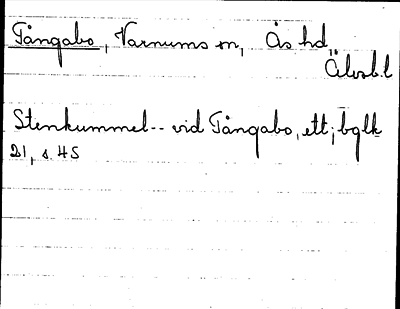 Tångabo, Varnums sn, Ås hd,
Älvsb.l
Stenkummel-- vid Tångabo, ett; bglk
21, s. 45